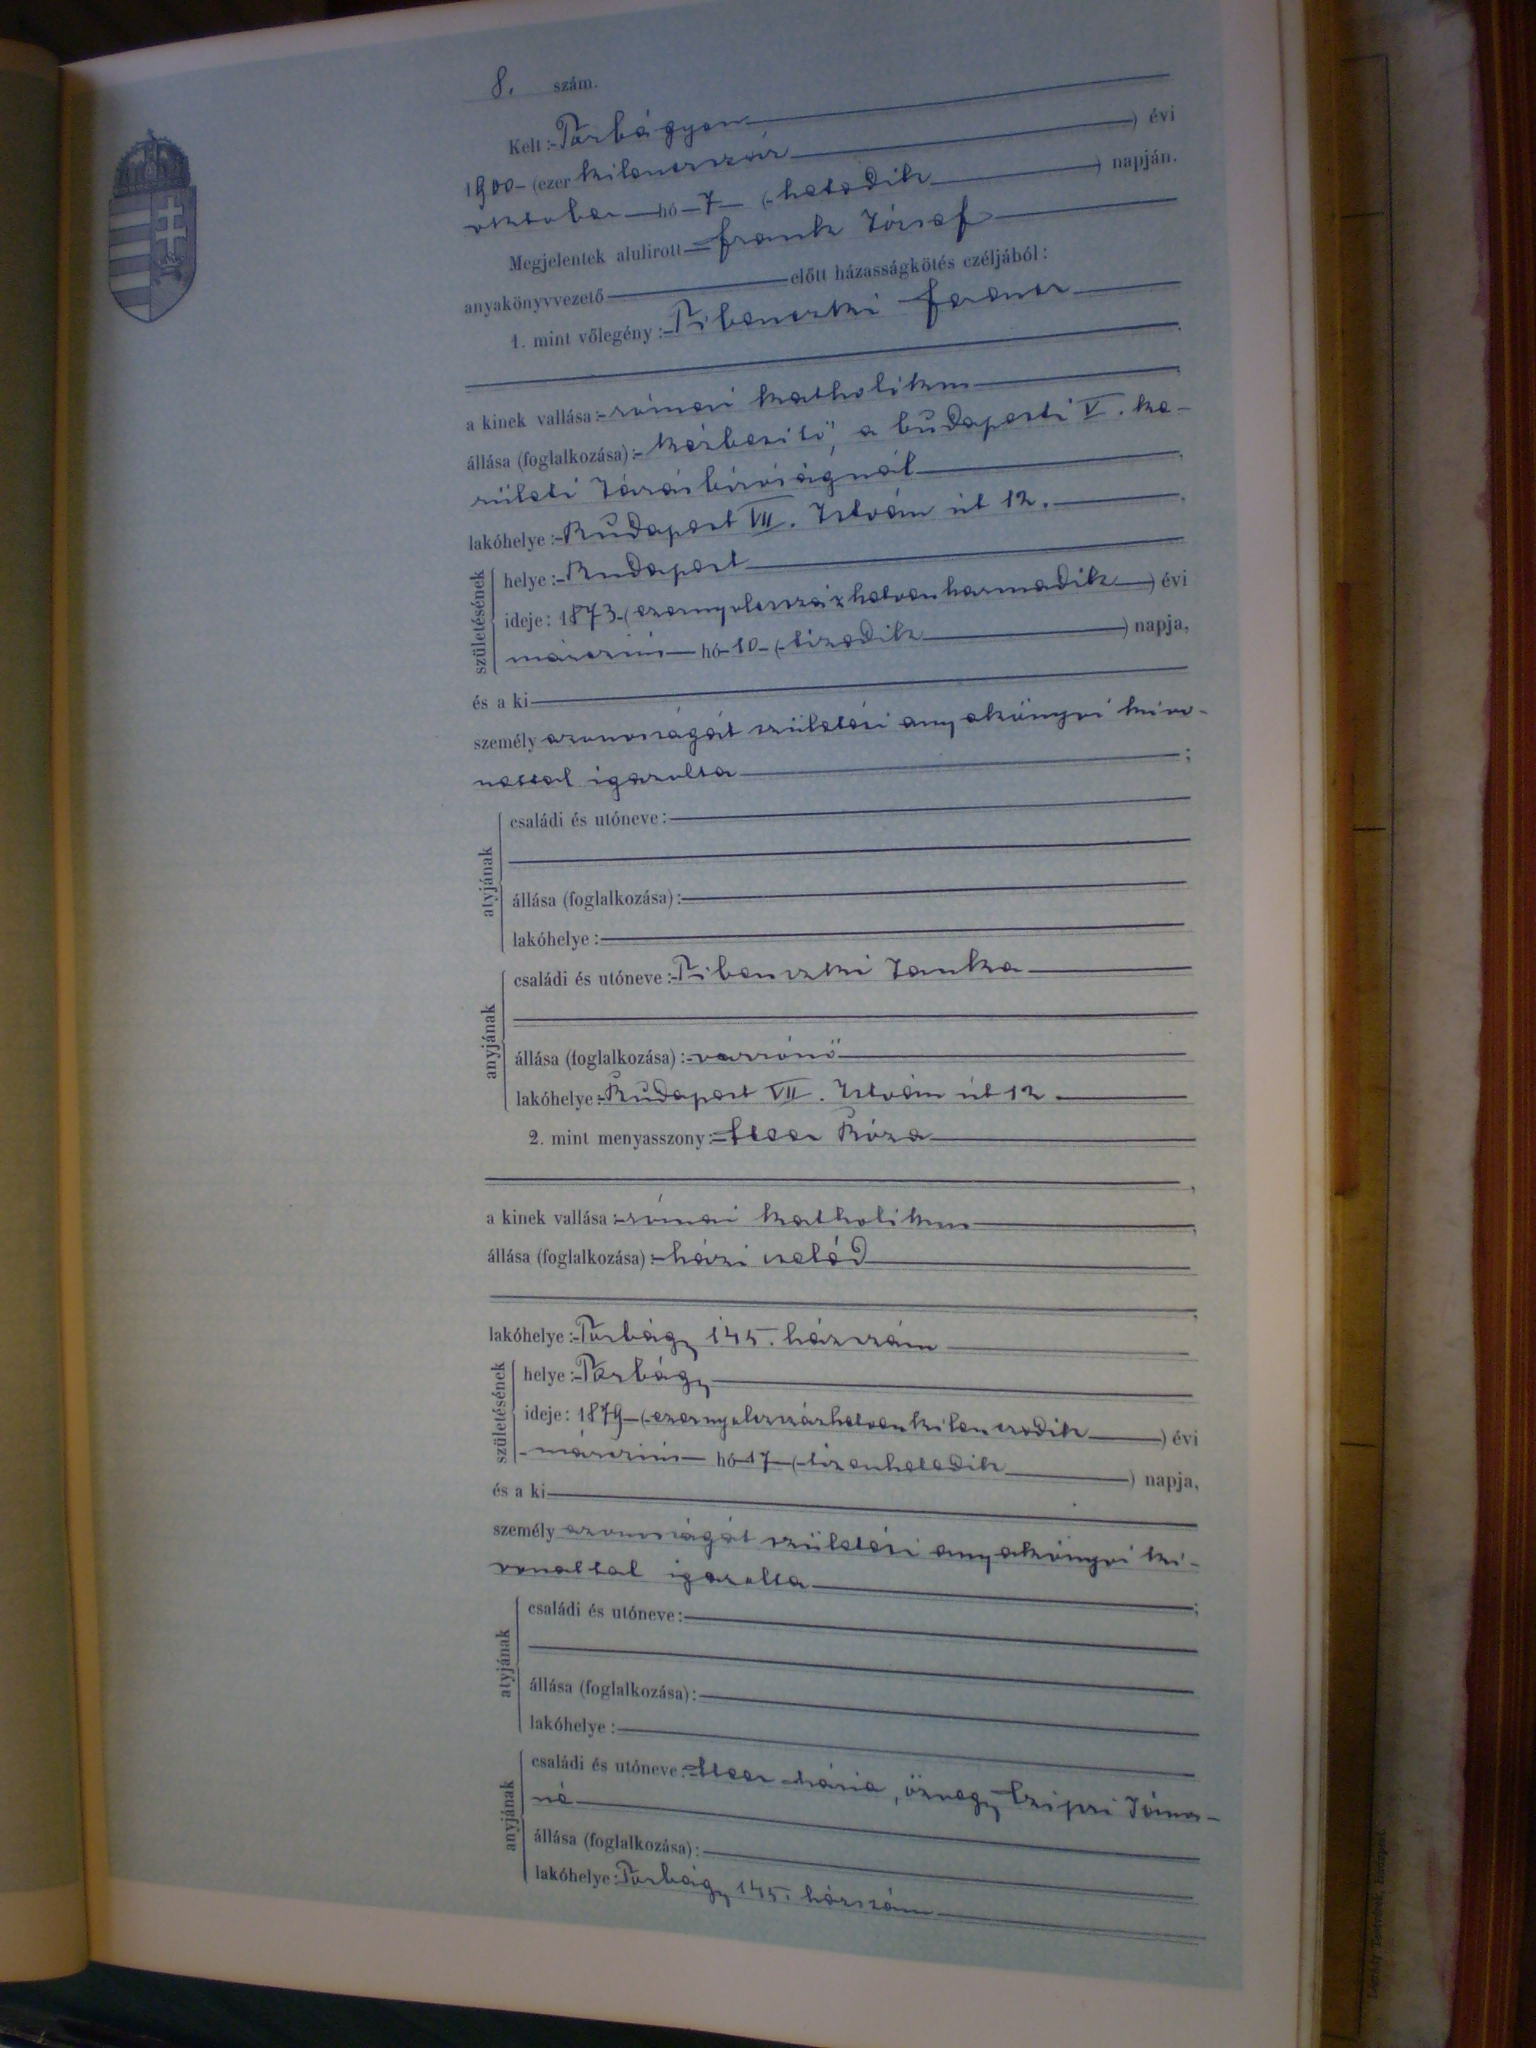 8. szám.
Kelt: Torbágyon
1900 (ezer kilencszáz ) évi
oktober hó 7 (hetedik ) napján.
Megjelentek alulirott Frank József
anyakönyvvezető előtt házasságkötés czéljából:
1. mint vőlegény: Ferencz
a kinek vallása: római katholikus
állása (foglalkozása): kézbesitő, a budapesti V. ke-
rületi Járásbíróságnál
lakóhelye: Budapest VII. István út 12.
születésének
helye: Budapest
ideje: 1873 (ezernyolcszázhetvenharmadik ) évi
márczius hó 10 (tizedik ) napja,
és a ki
személy azonosságát születési anyakönyvi kivo-
nattal igazolta ;
atyjának
családi és utóneve:
állása (foglalkozása):
lakóhelye:
anyjának
családi és utóneve: Janka
állása (foglalkozása): varrónő
lakóhelye: Budapest VII. István út 12.
2. mint menyasszony: Róza
a kinek vallása: római katholikus
állása (foglalkozása): házi cseléd
lakóhelye: Torbágy 145. házszám
születésének
helye: Torbágy
ideje: 1879 (ezernyolcszázhetvenkilenczedik ) évi
márczius hó 17 (tizenhetedik ) napja,
és a ki
személy azonosságát születési anyakönyvi ki-
vonattal igazolta ;
atyjának
családi és utóneve:
állása (foglalkozása):
lakóhelye:
anyjának
családi és utóneve: Mária, özvegy
né
állása (foglalkozása):
lakóhelye: Torbágy 145. házszám